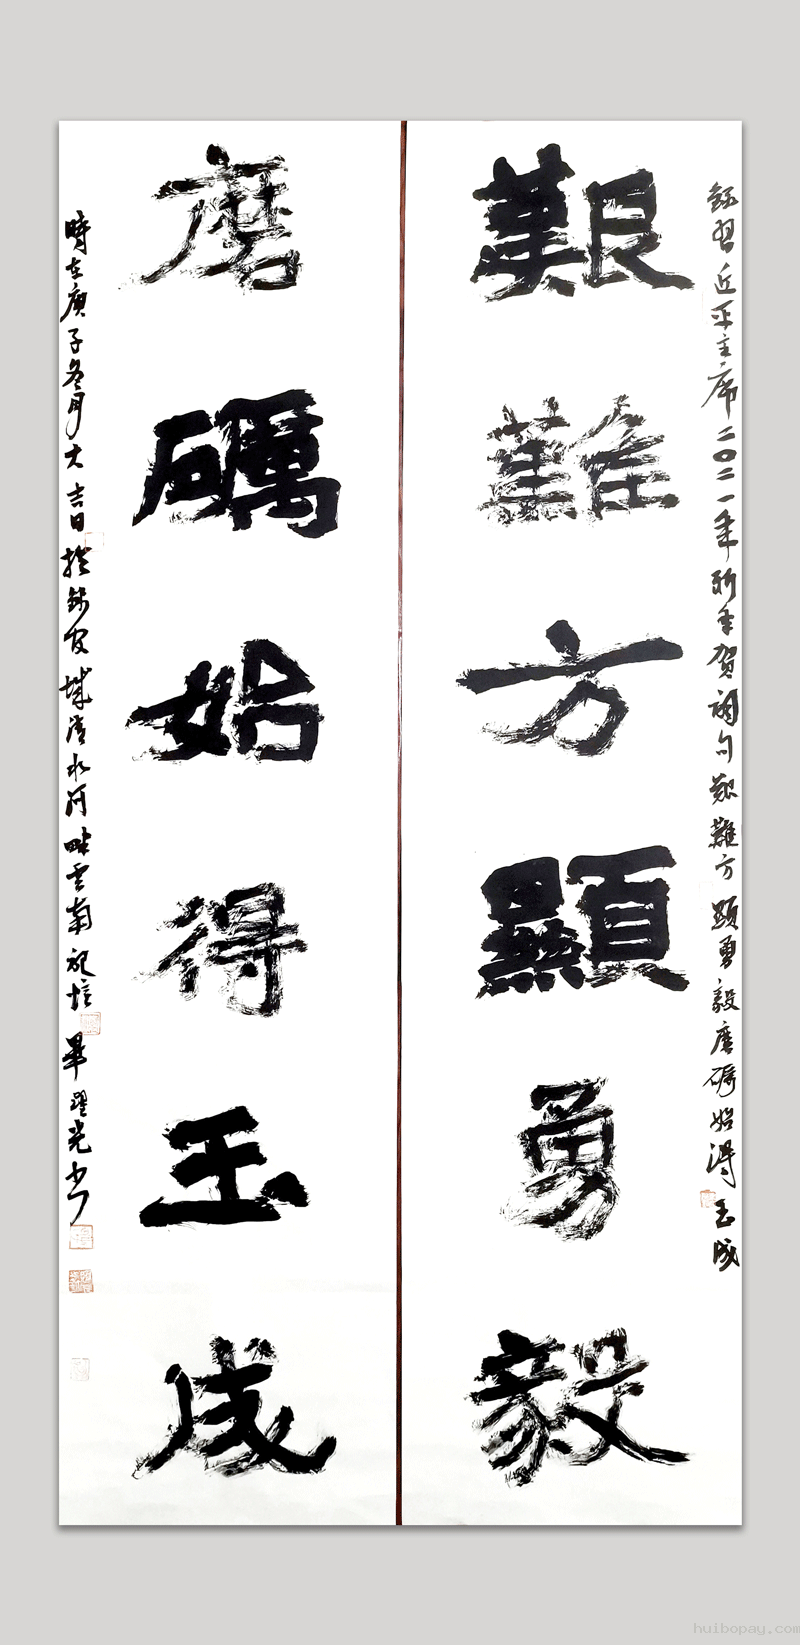 錄習近平主席二〇二一年新年賀詞句艱難方顯勇毅磨礪始得玉成
艱難方顯勇毅
磨礪始得玉成
時在庚子冬月大吉日於錦官城清水河畔雲南記培畢躍光書
huibopay.com